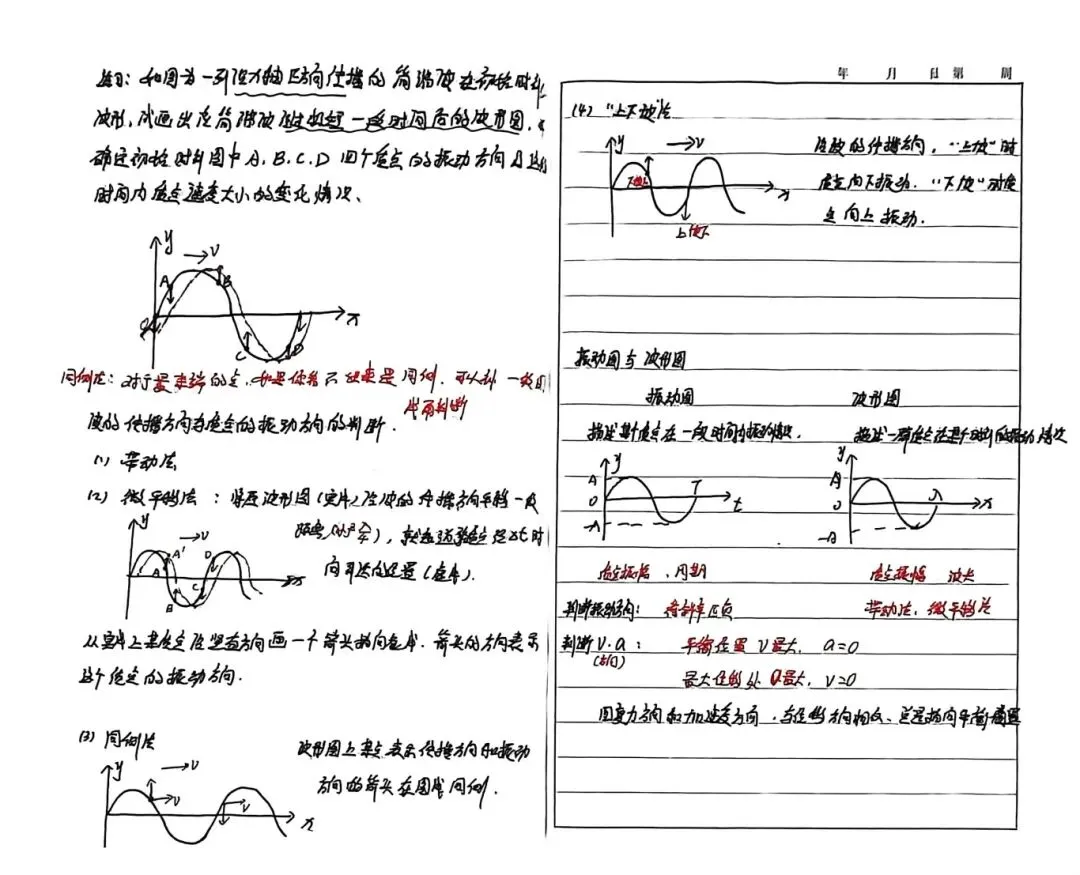 如图为一列沿x轴正方向传播的简谐波在初始时刻
波形,试画出该简谐波经过一段时间后的波形图,
确定初始时刻图中A、B、C、D四个质点的振动方向及这
时间内质点速度大小的变化情况、
y
→v
A
B
C
D
x
同侧法:对于最末端的点,
一段
波的传播方向与质点的振动方向的判断.
(1) 带动法
(2) 微平移法:将原波形图(实线)沿波的传播方向平移一段
y
→v
A'
D
A
B
C
x
向到达的位置(虚线).
从实线上某质点沿竖直方向画一个箭头指向虚线.箭头的方向表示
这个质点的振动方向.
(3) 同侧法
y
→v
v
v
x
波形图上某点表示传播方向和振动
方向的箭头在图线同侧.
年 月 日 第 周
(4) "上下坡"法
y
→v
x
下坡上
上坡下
沿波的传播方向,"上坡"时
质点向下振动."下坡"时质
点向上振动.
振动图与波形图
振动图
波形图
描述某个质点在一段时间内振动情况.
描述一群质点在某个时刻的振动情况
y
A
0
-A
T
t
y
A
0
-A
λ
x
质点振幅、周期
质点振幅 波长
判断振动方向: 看斜率正负
带动法、微平移法
判断v.a:
(方向)
平衡位置v最大, a=0
最大位移处a最大, v=0
回复力方向和加速度方向,与位移方向相反、总是指向平衡位置